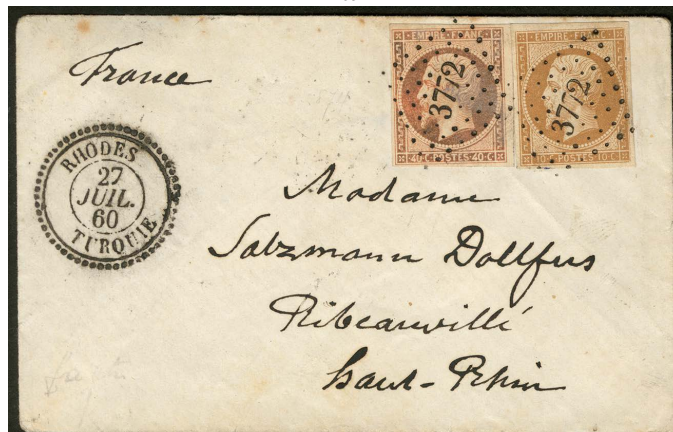 France
EMPIRE FRANC
40 C POSTES 40 C
3772
EMPIRE FRANC
10 C POSTES 10 C
3772
RHODES
27
JUIL.
60
TURQUIE
Madame
Salzmann Dollfus
Ribeauvillé
haut-Rhin